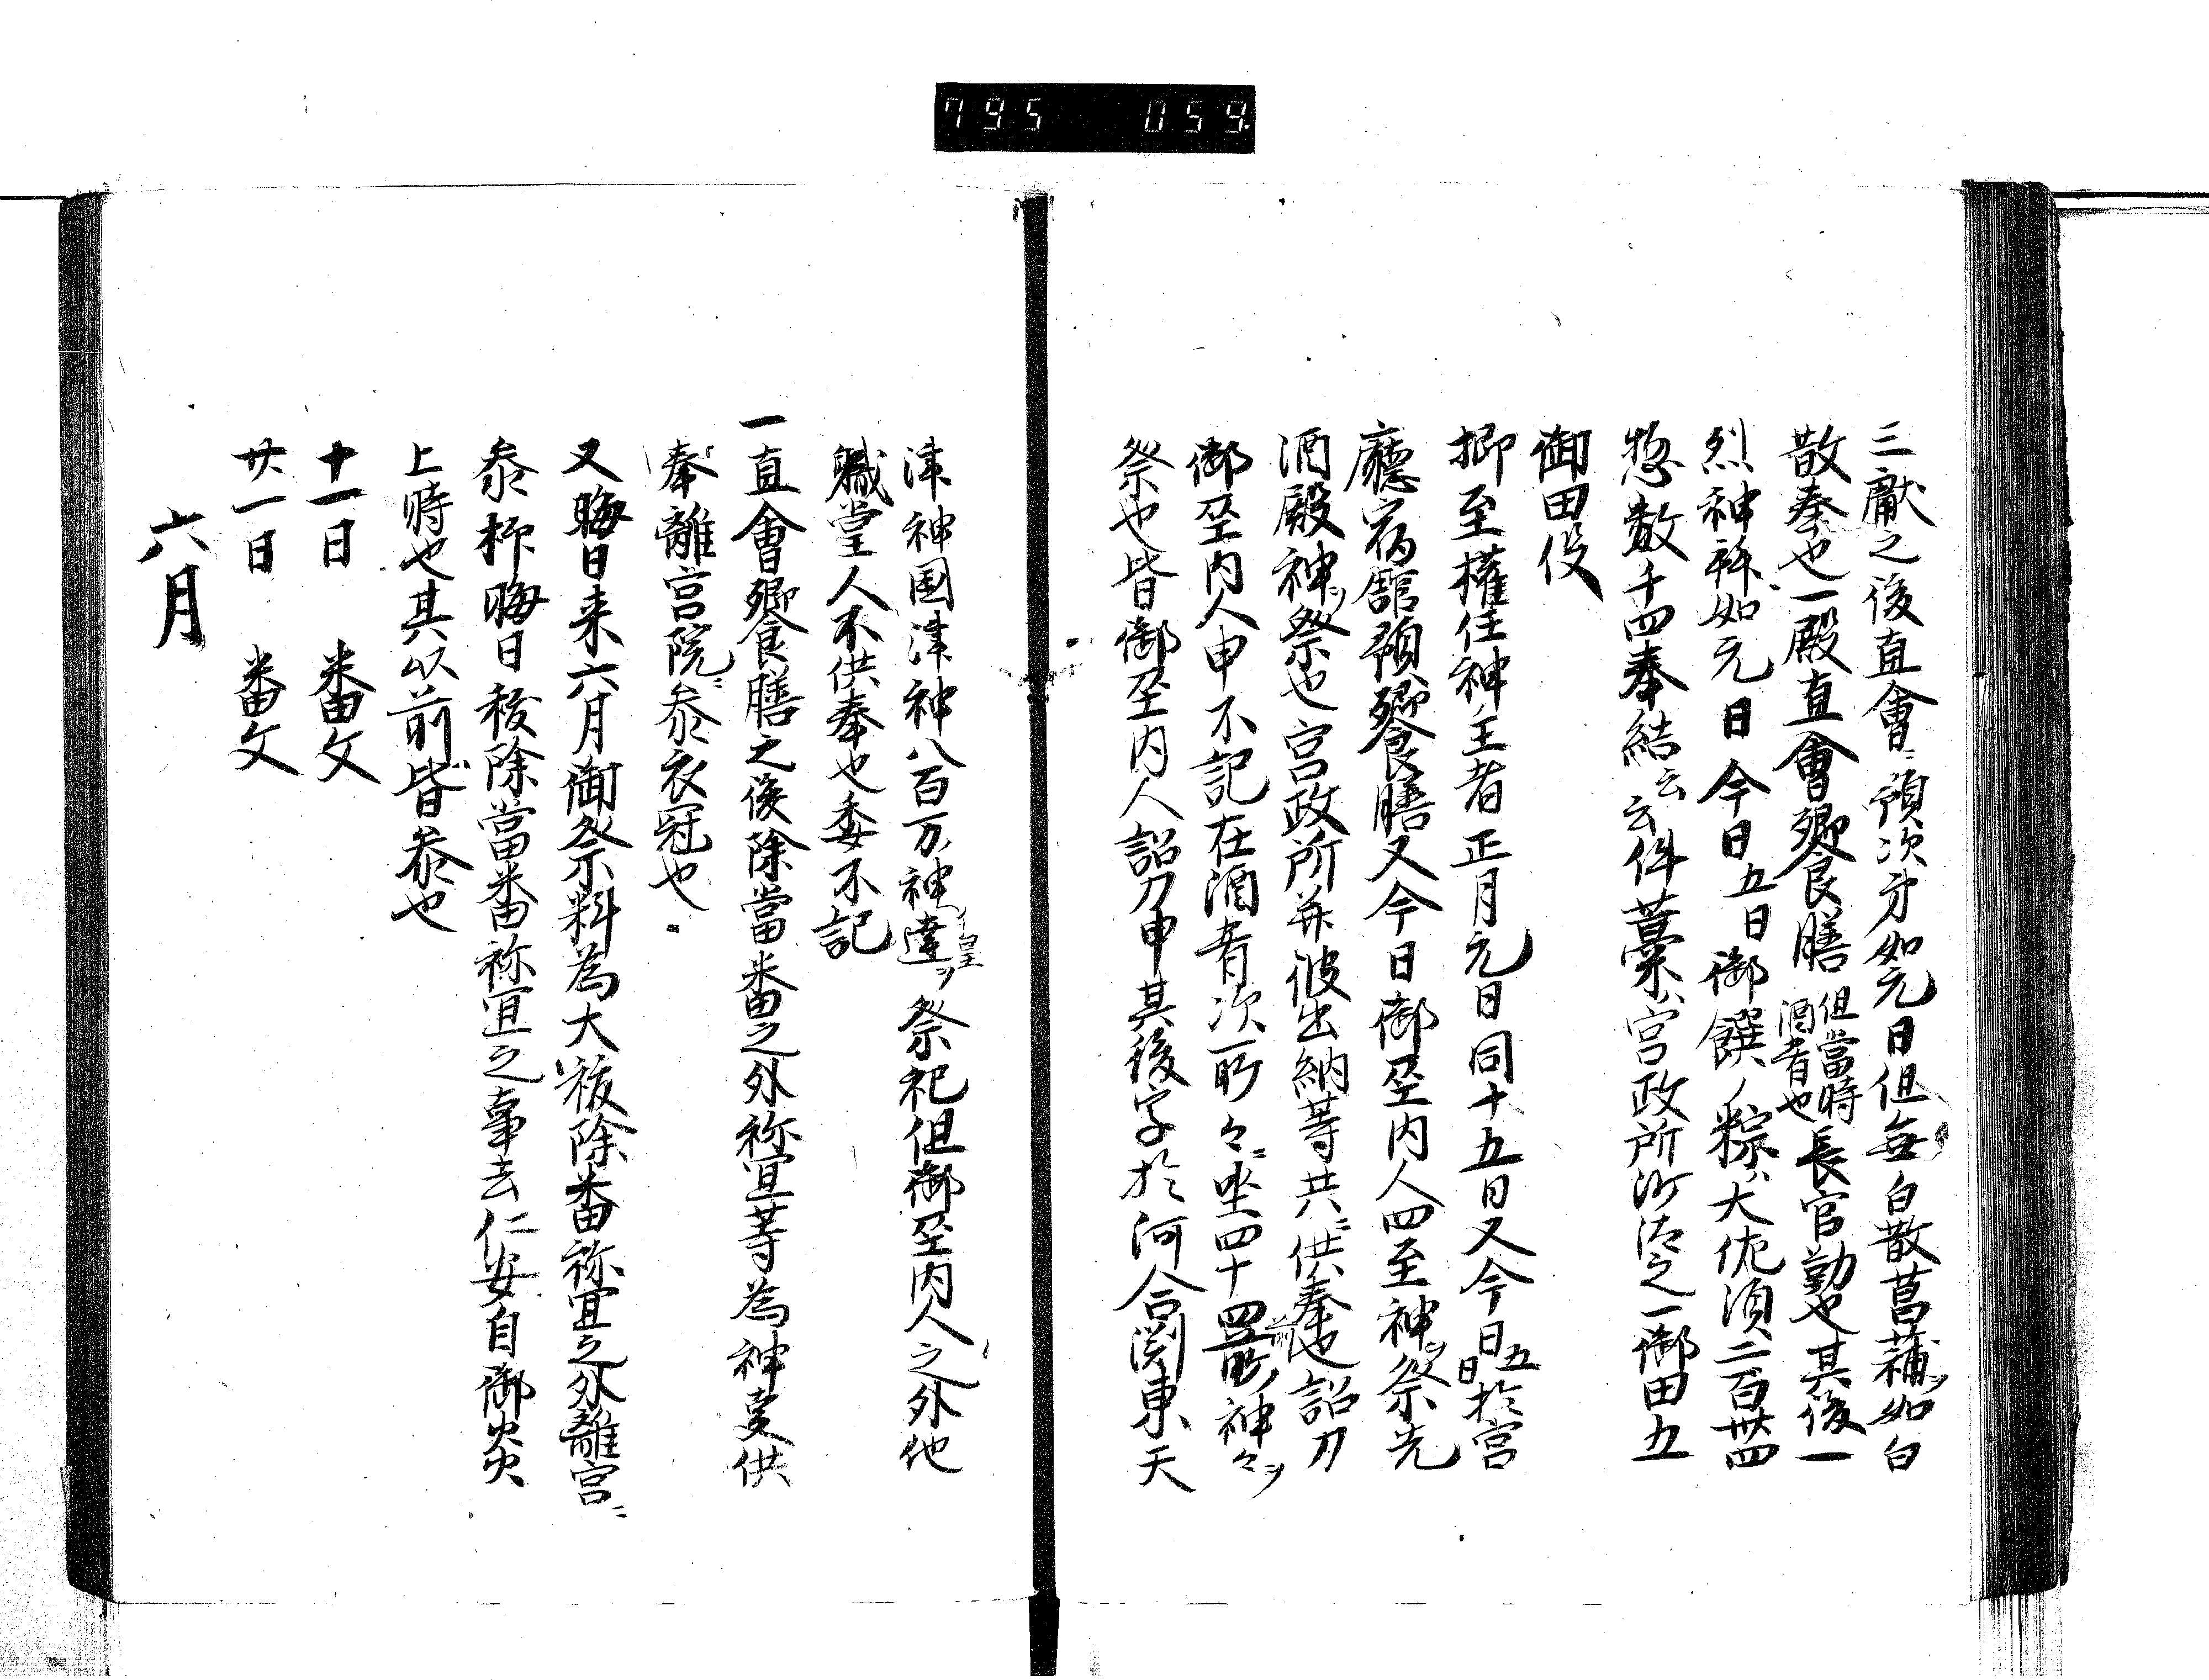 795 059
三献之後直會ニ預次才如元日但無白散菖蒲ヲ如白
散奉也一殿直會饗膳但當時酒肴也長官勤也其後一
烈神拝如元日今日五日御饌ノ粽ハ大佗須二百卌四
惣数千四奉結云云件藁ハ宮政所沙汰之一御田五
御田役
抑至権任神主者正月元日同十五日又今日五日於宮
廳宿舘預饗膳又今日御巫内人四至神ヲ祭先
酒殿神ヲ祭也宮政所并彼出納等共ニ供奉也詔刀
御巫内人申不記在酒肴次所々ニ坐四十四前神々ヲ
祭也皆御巫内人詔刀申其後字於河合関東天
津神国津神八百万神達ヲ祭祀但御巫内人之外他
職掌人不供奉也委不記
一直會饗膳之後除當番之外祢宜等為神叓供
奉離宮院ニ参衣冠也
又晦日来六月御祭料為大祓除番祢宜之外離宮ニ
参抑晦日祓除當番祢宜之事去仁安自御炎
上時也其以前皆参也
十一日　番文
廿一日　番文
六月